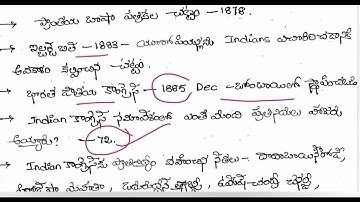 → ప్రాంతీయ భాషా పత్రికల చట్టం - 1878.
→ ఇల్బర్ట్ బిల్ - 1883 - యూరోపియన్లను Indians విచారించడానికి
అవకాశం కల్పించిన చట్టం.
→ భారత జాతీయ కాంగ్రెస్ - 1885 Dec - బొంబాయిలో స్థాపించబడి
→ Indian కాంగ్రెస్ సమావేశంలో ఎంత మంది ప్రతినిధులు హాజరు
అయ్యారు? - 72.
→ Indian కాంగ్రెస్‌కు ప్రాతినిధ్యం వహించిన నేతలు - దాదాభాయ్ నౌరోజీ,
మెహతా, ఉమేష్ చంద్ర బెనర్జీ,